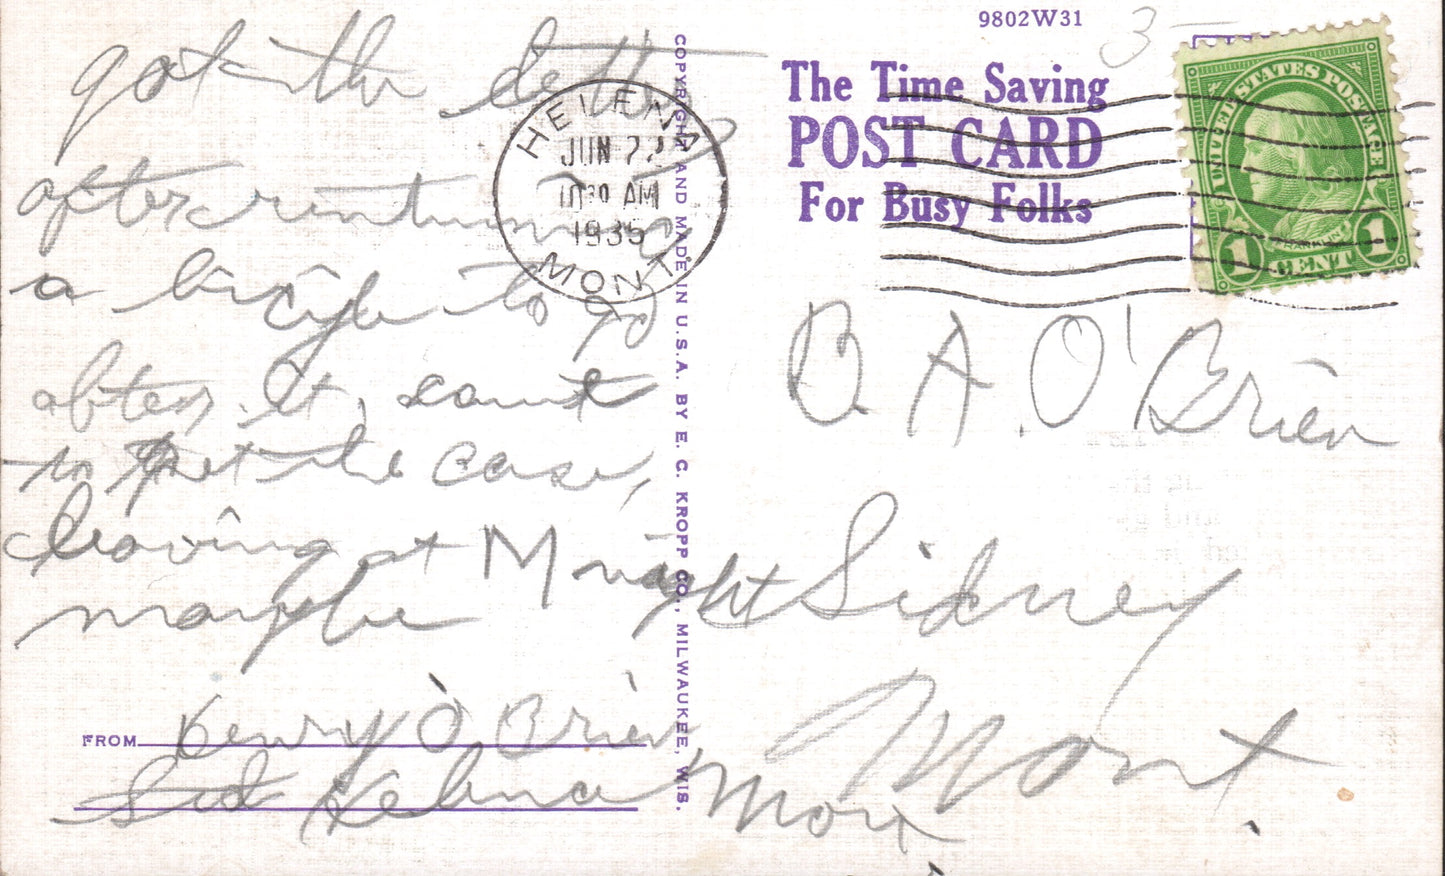 got the letter
after renting
a bicycle to go
after it, sent
in the case,
leaving at M night
maybe
FROM Henry O'Brien
Helena Mont.
COPYRIGHT AND MADE IN U.S.A. BY E. C. KROPP CO., MILWAUKEE, WIS.
9802W31
3
The Time Saving
POST CARD
For Busy Folks
HELENA
JUN 22
10 30 AM
1935
MONT.
UNITED STATES POSTAGE
1 CENT 1
A. O'Brien
Sidney
Mont.